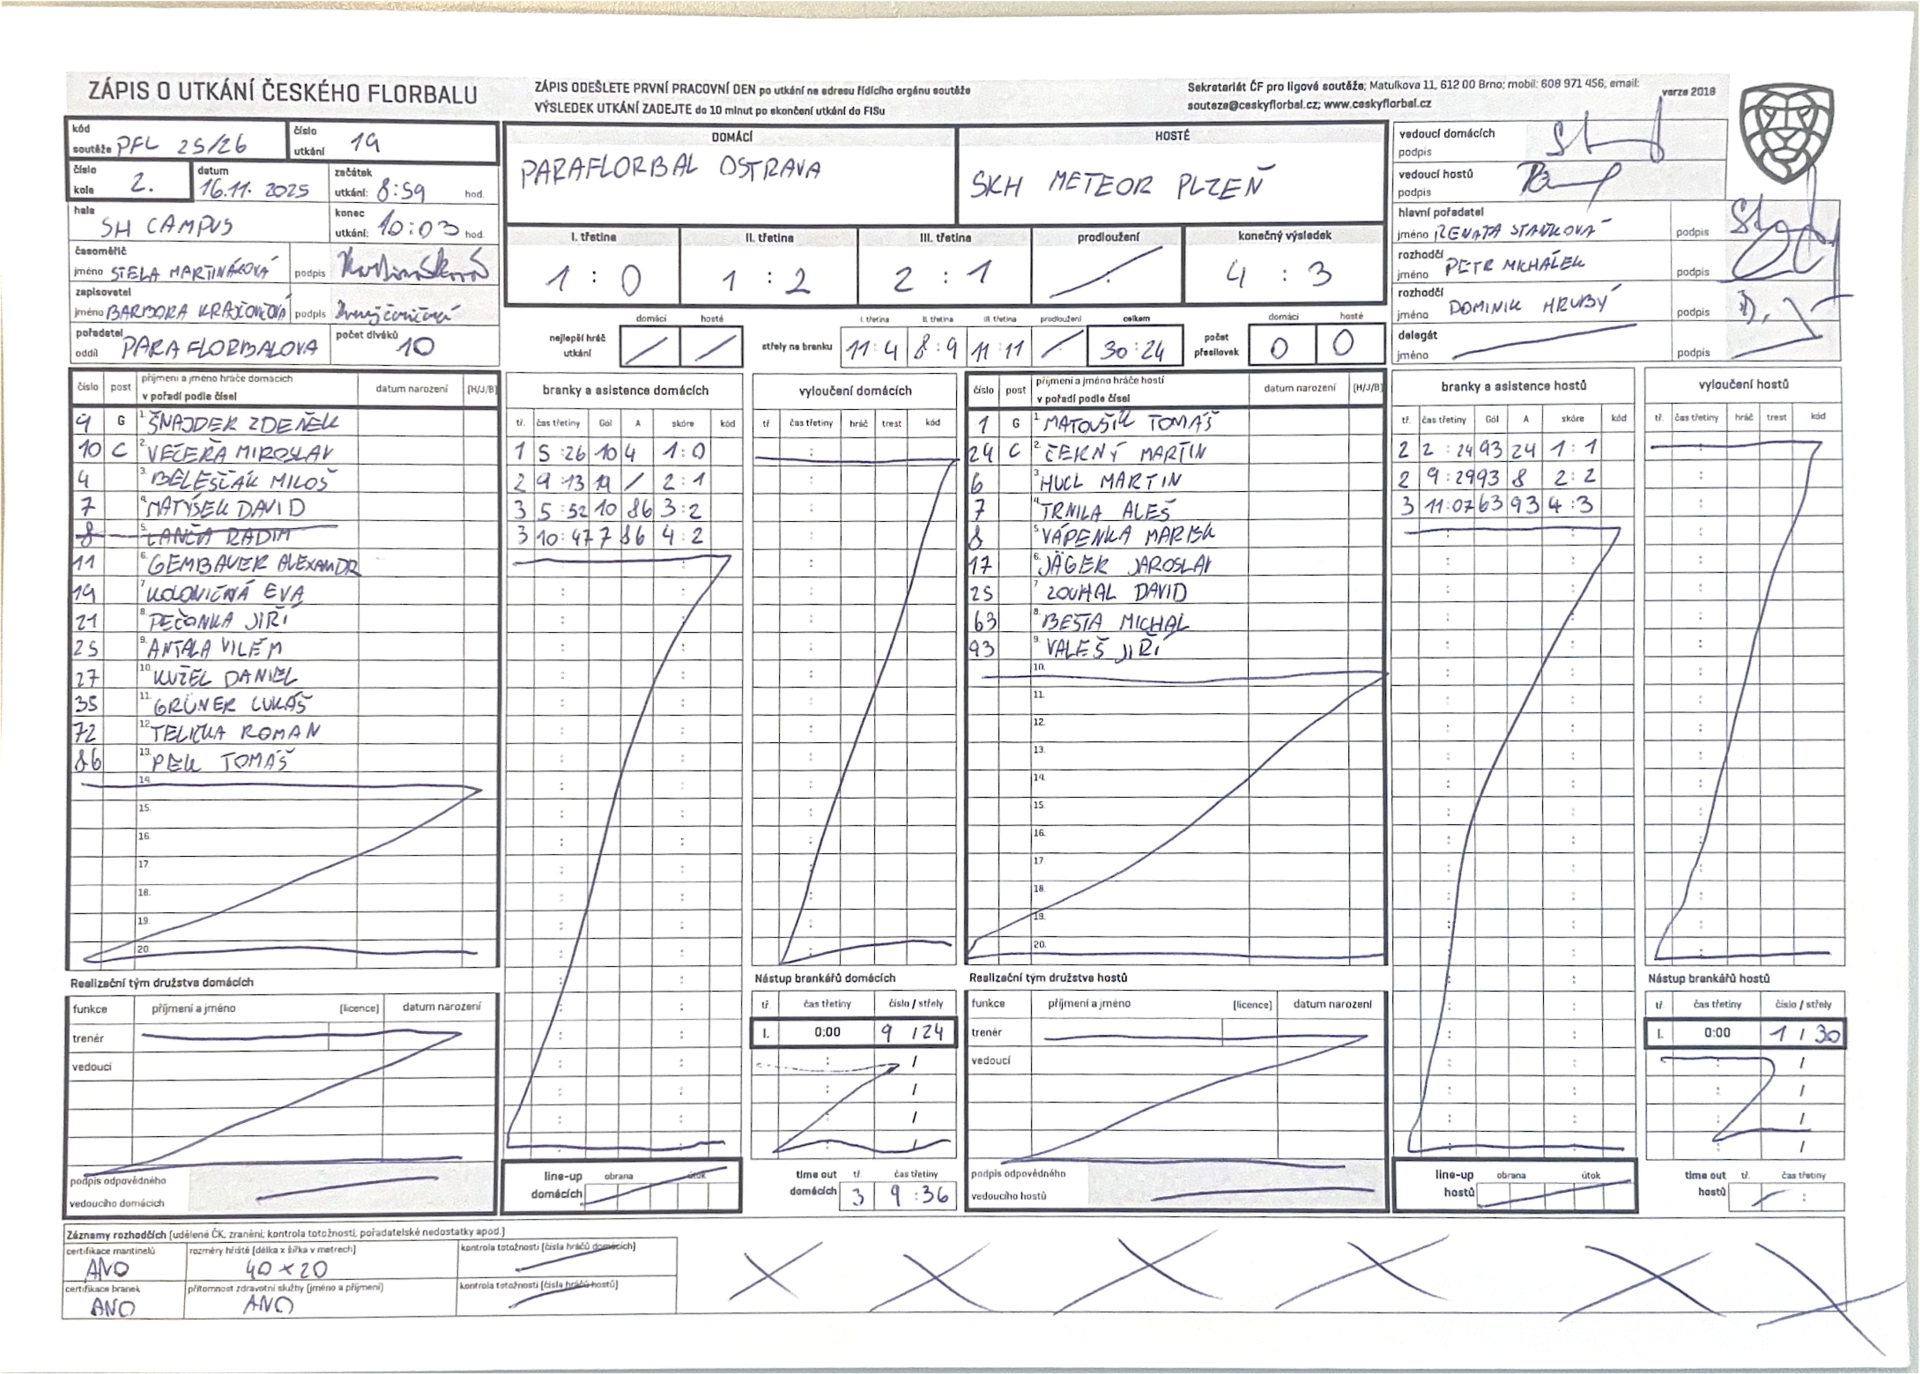 ZÁPIS O UTKÁNÍ ČESKÉHO FLORBALU
ZÁPIS ODEŠLETE PRVNÍ PRACOVNÍ DEN po utkání na adresu řídícího orgánu soutěže
VÝSLEDEK UTKÁNÍ ZADEJTE do 10 minut po skončení utkání do FISu
Sekretariát ČF pro ligové soutěže; Matulkova 11, 612 00 Brno; mobil: 608 971 456; email:
souteze@ceskyflorbal.cz; www.ceskyflorbal.cz
verze 2018
kód soutěže PFL 25/26
číslo utkání 19
číslo kola 2.
datum 16.11. 2025
začátek utkání: 8:59 hod.
hala SH CAMPUS
konec utkání: 10:03 hod.
časoměřič
jméno STELA MARTINÁKOVÁ podpis
zapisovatel
jméno BARBORA podpis
pořadatel oddíl PARAFLORBALOVA
počet diváků 10
DOMÁCÍ
PARAFLORBAL OSTRAVA
HOSTÉ
SKH METEOR PLZEŇ
I. třetina II. třetina III. třetina prodloužení konečný výsledek
1 : 0 1 : 2 2 : 1 4 : 3
nejlepší hráč utkání domácí hosté
střely na branku I. třetina II. třetina III. třetina prodloužení celkem
11:4 8:9 11:11 30:24
počet přesilovek domácí hosté
0 0
vedoucí domácích
podpis
vedoucí hostů
podpis
hlavní pořadatel
jméno RENATA STAŇKOVÁ podpis
rozhodčí
jméno PETR MICHÁLEK podpis
rozhodčí
jméno DOMINIK HRUBÝ podpis
delegát
jméno podpis
číslo post příjmení a jméno hráče domácích v pořadí podle čísel datum narození (H/J/B)
9 G 1. ŠNAJDER ZDENĚK
10 C 2. VEČEŘA MIROSLAV
4 3. BĚLEŠČÁK MILOŠ
7 4. MATÝSEK DAVID
8 5. LANČA RADIM
11 6. GEMBAUER ALEXANDR
19 7. KOLONIČNÁ EVA
21 8. PEČONKA JIŘÍ
25 9. ANTALA VILÉM
27 10. KUŽEL DANIEL
35 11. GRÜNER LUKÁŠ
72 12. TELIČKA ROMAN
86 13. PEK TOMÁŠ
14.
15.
16.
17.
18.
19.
20.
branky a asistence domácích
tř. čas třetiny Gól A skóre kód
1 5:26 10 4 1:0
2 9:13 19 / 2:1
3 5:52 10 86 3:2
3 10:47 7 86 4:2
vyloučení domácích
tř čas třetiny hráč trest kód
číslo post příjmení a jméno hráče hostí v pořadí podle čísel datum narození (H/J/B)
1 G 1. MATOUŠIK TOMÁŠ
24 C 2. ČERNÝ MARTIN
6 3. HUCL MARTIN
7 4. TRNILA ALEŠ
8 5. VÁPENKA MAREK
17 6. JÄGER JAROSLAV
25 7. ZOUHAL DAVID
63 8. BEŠTA MICHAL
93 9. VALEŠ JIŘÍ
10.
11.
12.
13.
14.
15.
16.
17
18.
19.
20.
branky a asistence hostů
tř. čas třetiny Gól A skóre kód
2 2:24 93 24 1:1
2 9:29 93 8 2:2
3 11:07 63 93 4:3
vyloučení hostů
tř. čas třetiny hráč trest kód
Realizační tým družstva domácích
funkce příjmení a jméno (licence) datum narození
trenér
vedoucí
podpis odpovědného
vedoucího domácích
line-up domácích obrana útok
Nástup brankářů domácích
tř čas třetiny číslo / střely
I. 0:00 9 / 24
time out domácích tř. čas třetiny
3 9:36
Realizační tým družstva hostů
funkce příjmení a jméno (licence) datum narození
trenér
vedoucí
podpis odpovědného
vedoucího hostů
line-up hostů obrana útok
Nástup brankářů hostů
tř čas třetiny číslo / střely
I. 0:00 1 / 30
time out hostů tř. čas třetiny
Záznamy rozhodčích (udělené ČK, zranění, kontrola totožnosti, pořadatelské nedostatky apod.)
certifikace mantinelů ANO
rozměry hřiště (délka x šířka v metrech) 40 × 20
kontrola totožnosti (čísla hráčů domácích)
certifikace branek ANO
přítomnost zdravotní služby (jméno a příjmení) ANO
kontrola totožnosti (čísla hráčů hostů)